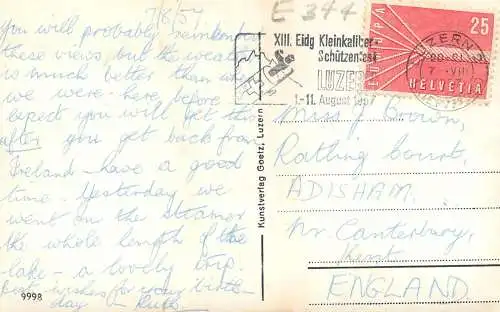 7/8/57
You will probably
these views but the
is much better than
we were here before
expect you will get this
after you get back from
Ireland - have a good
time. Yesterday we
went on the steamer
the whole length of the
lake - a lovely trip.
Best wishes for your birth-
day - Ruth.
9998
Kunstverlag Goetz, Luzern
E 344
XIII. Eidg Kleinkaliber-
Schützenfest
LUZERN
1.-11. August 1957
LUZERN
EUROPA
25
HELVETIA
Miss J Crown,
Ratling Court,
ADISHAM,
Nr. Canterbury,
Kent
ENGLAND